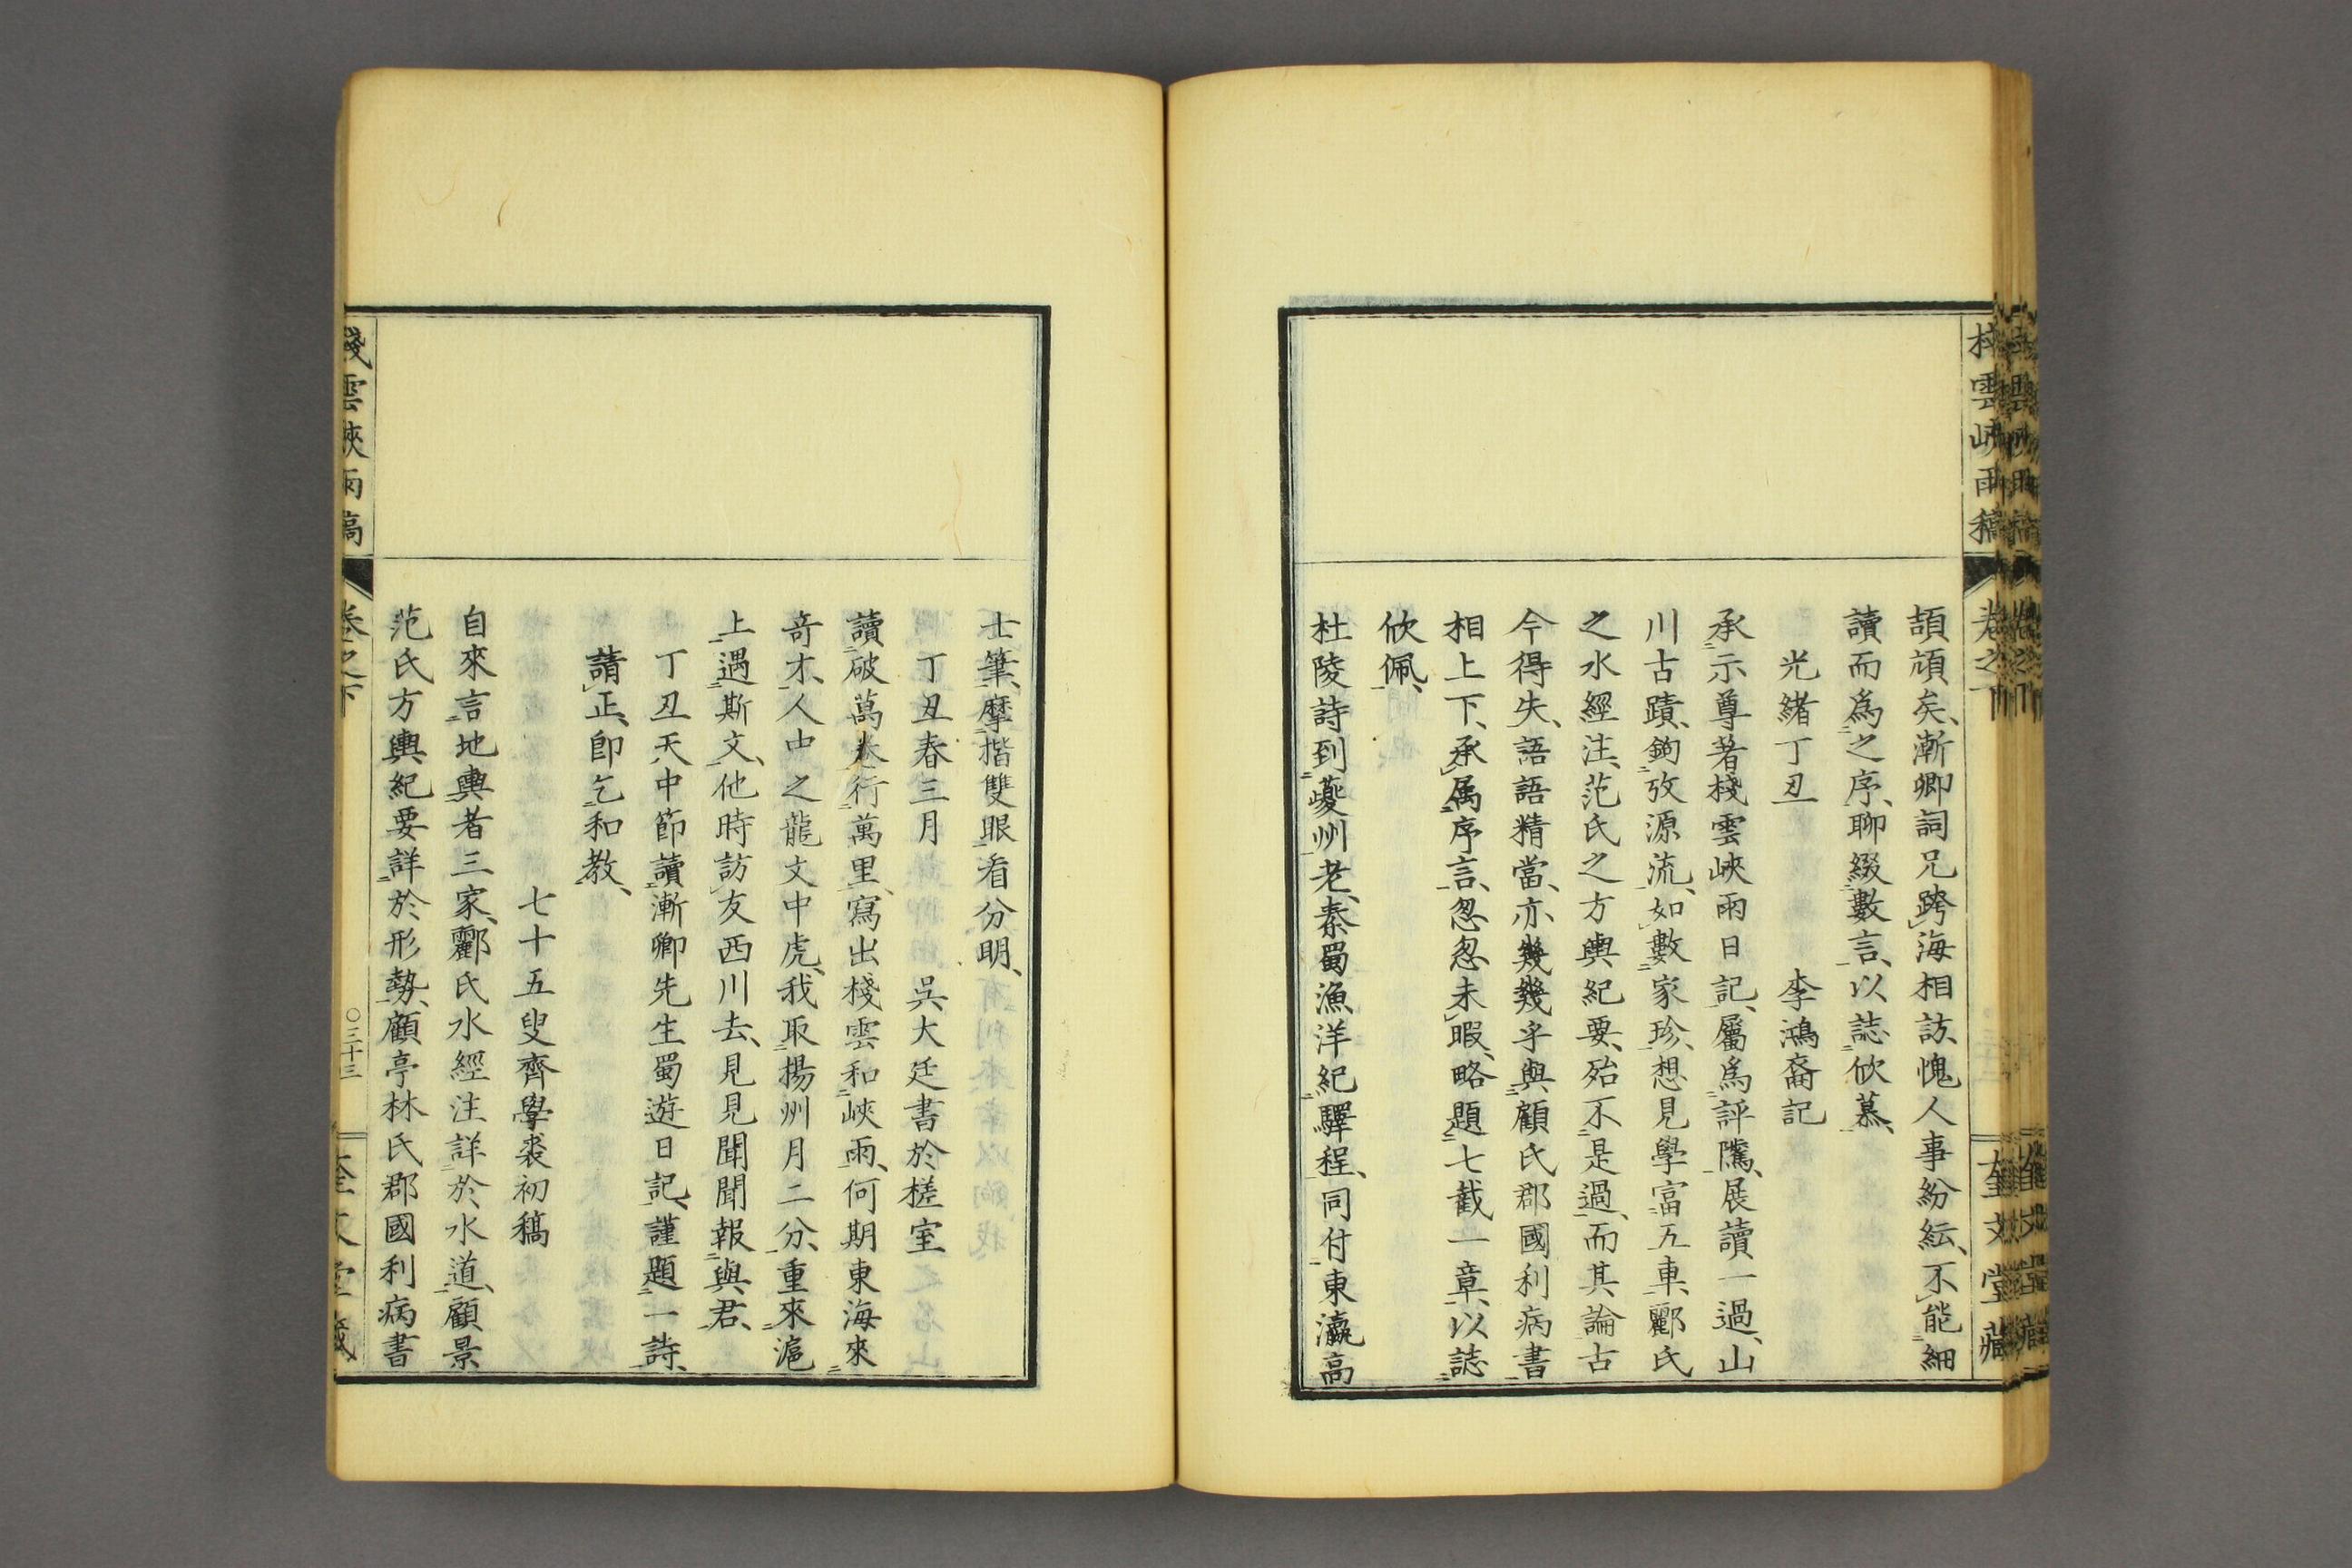 頡頏矣、漸卿詞兄跨海相訪、愧人事紛紜、不能細
讀而爲之序、聊綴數言、以誌欣慕、
光緒丁丑 李鴻裔記
承示尊著棧雲峽雨日記、屬爲評騭、展讀一過、山
川古蹟、鉤攷源流、如數家珍、想見學富五車、酈氏
之水經注、范氏之方輿紀要、殆不是過、而其論古
今得失、語語精當、亦幾幾乎與顧氏郡國利病書
相上下、承属序言、忽忽未暇、略題七截一章、以誌
欣佩、
杜陵詩到夔州老、秦蜀漁洋紀驛程、同付東瀛高
士筆、摩揩雙眼看分明、
丁丑春三月 吳大廷書於槎室
讀破萬卷行萬里、寫出棧雲和峽雨、何期東海來
奇才、人中之龍文中虎、我取揚州月二分、重來滬
上遇斯文、他時訪友西川去、見見聞聞報與君、
丁丑天中節讀漸卿先生蜀遊日記、謹題一詩、
請正、卽乞和教、
七十五叟齊學裘初稿
自來言地輿者三家、酈氏水經注詳於水道、顧景
范氏方輿紀要詳於形勢、顧亭林氏郡國利病書
棧雲峽雨稿 卷之下 〇三十三 奎文堂藏